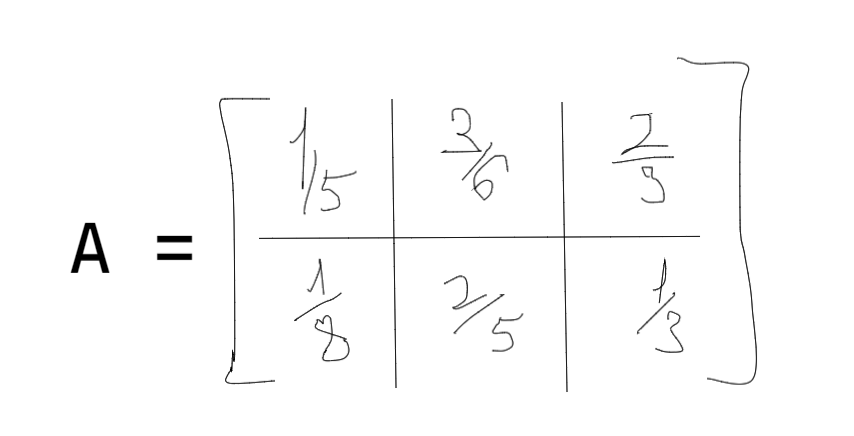 A = [ 1/5 2/6 2/3
1/8 2/5 1/3 ]